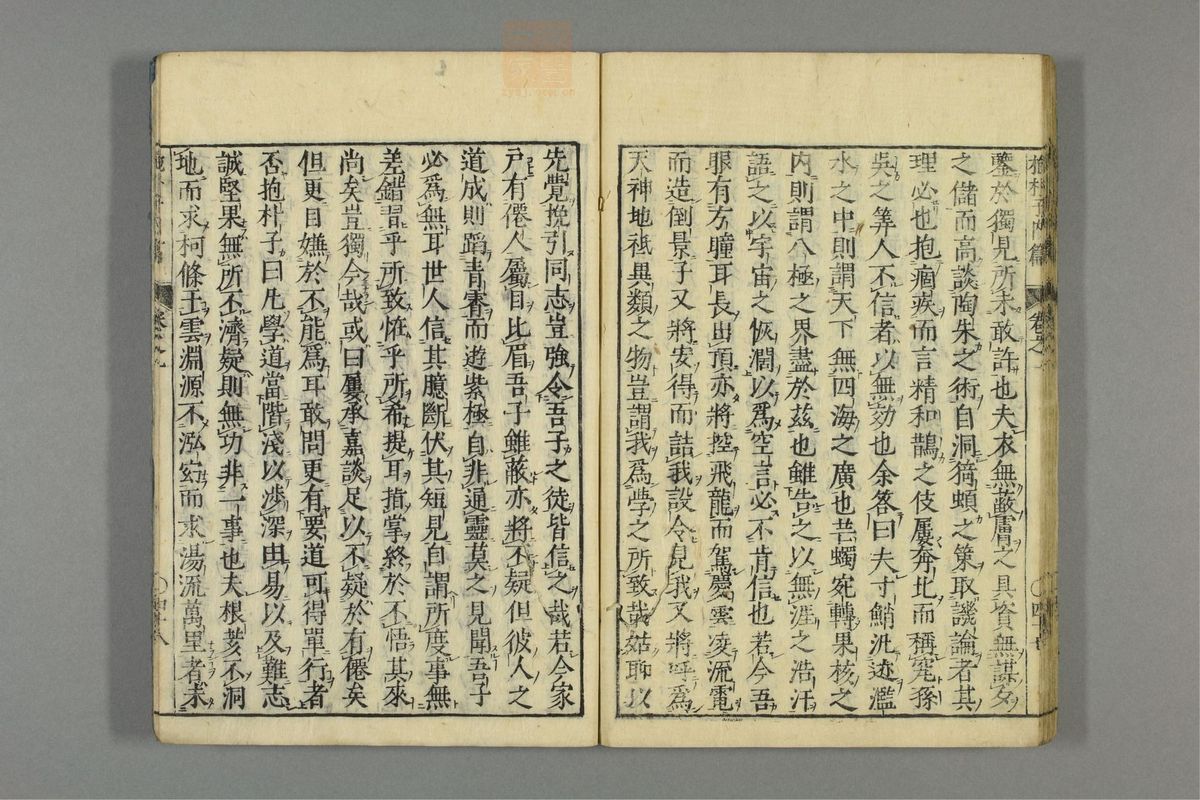 抱朴子内篇 卷之
鑒於獨見所未敢許也夫衣無蔽膚之具資無謀夕
之儲而高談陶朱之術自洞猗頓之策取譏論者其
理必也抱痼疾而言精和鵲之伎屢奔北而稱究孫
吳之筭人不信者以無効也余答曰夫寸鮹汎迹濫
水之中則謂天下無四海之廣也芒蠋宛轉果核之
内則謂八極之界盡於茲也雖告之以無涯之浩汗
語之以宇宙之恢濶以爲空言必不肯信也若令吾
眼有方瞳耳長出頂亦將控飛龍而駕慶雲凌流電
而造倒景子又將安得而詰我設令見我又將呼爲
天神地祇異類之物豈謂我爲學之所致哉姑聊以
先覺挽引同志豈強令吾子之徒皆信之哉若令家
戸有僊人屬目比眉吾子雖蔽亦將不疑但彼人之
道成則蹈青霄而遊紫極自非通靈莫之見聞吾子
必爲無耳世人信其臆斷伏其短見自謂所度事無
差錯習乎所致恠乎所希提耳指掌終於不悟其來
尚矣豈獨今哉或曰屢承嘉談足以不疑於有僊矣
但更自嫌於不能爲耳敢問更有要道可得單行者
否抱朴子曰凡學道當階淺以渉深由易以及難志
誠堅果無所不濟疑則無功非一事也夫根荄不洞
地而求柯條于雲淵源不泓窈而求湯流萬里者未